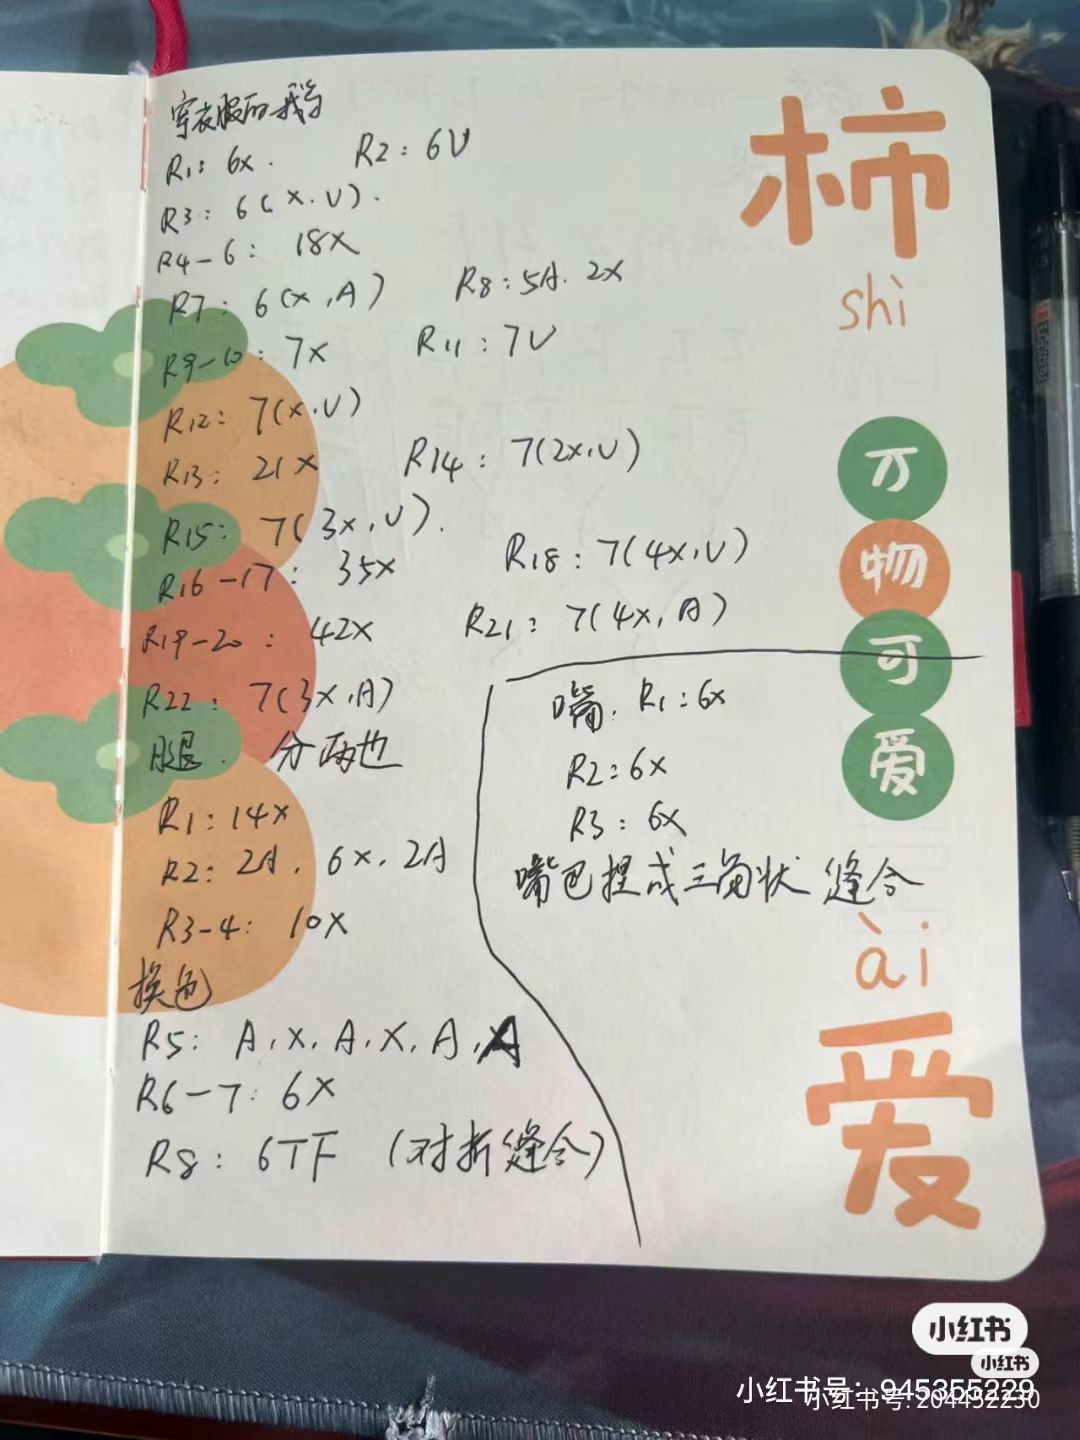 穿衣服的我与
R1: 6x. R2: 6V
R3: 6(x.V).
R4-6: 18x
R7: 6(x,A) R8: 5A. 2x
R9-10: 7x R11: 7V
R12: 7(x.V)
R13: 21x R14: 7(2x,V)
R15: 7(3x,V).
R16-17: 35x R18: 7(4x,V)
R19-20: 42x R21: 7(4x,A)
R22: 7(3x,A)
腿. 分两边
R1: 14x
R2: 2A. 6x. 2A
R3-4: 10x
换色
R5: A, x, A, x, A,
R6-7: 6x
R8: 6TF (对折缝合)
嘴. R1: 6x
R2: 6x
R3: 6x
嘴巴捏成三角状 缝合
柿
shì
万
物
可
爱
ài
爱
小红书
小红书
小红书号: 945355229
小红书号: 204452230